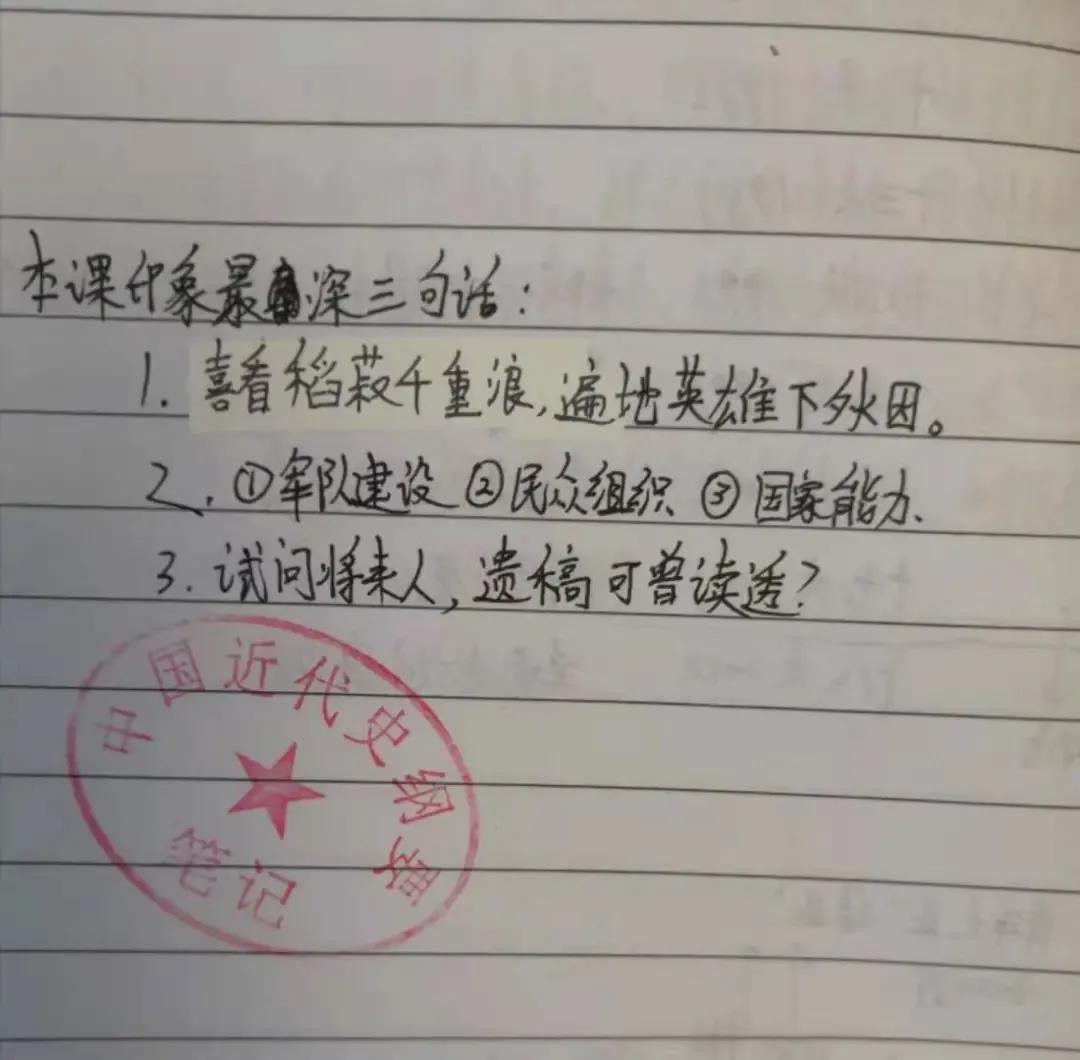 本课印象最深三句话：
1. 喜看稻菽千重浪，遍地英雄下夕烟。
2. ①军队建设 ②民众组织 ③国家能力、
3. 试问将来人，遗稿可曾读透？
中国近代史纲要
笔记